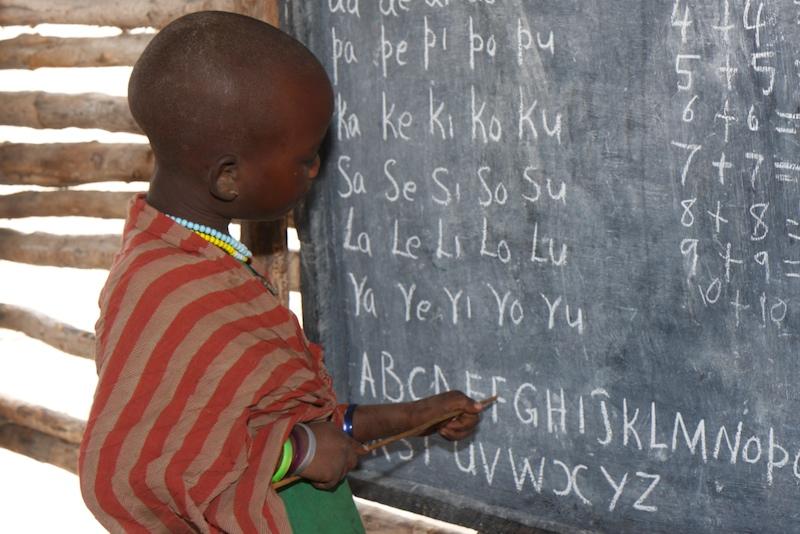 pa pe pi po pu
ka ke ki ko ku
Sa Se Si So Su
La Le Li Lo Lu
Ya Ye Yi Yo Yu
ABCD EFGHIJKLMNOP
STUVWXYZ
4 + 4
5 + 5
6 + 6 =
7 + 7 =
8 + 8 =
9 + 9 =
10 + 10